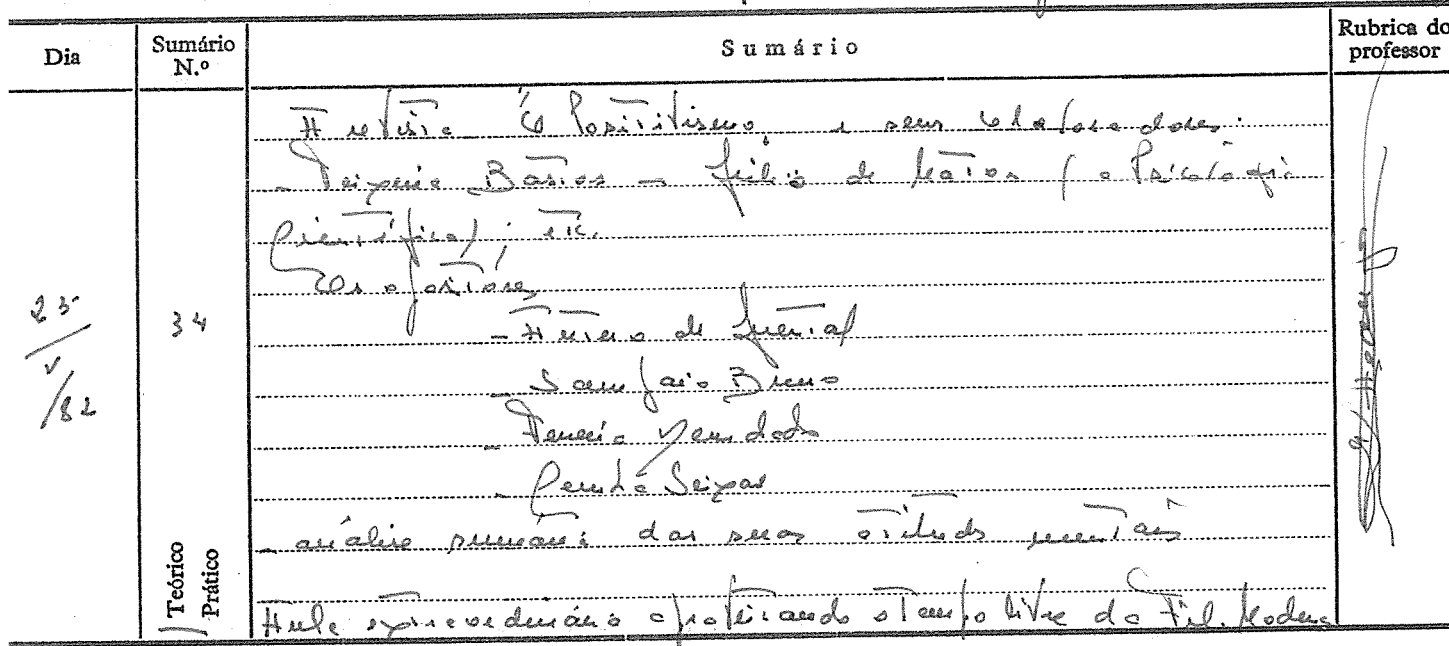 Dia
Sumário N.º
Sumário
Rubrica do professor
A revista "O Positivismo" e seus colaboradores:
- Teixeira Bastos - Júlio de Matos (a Psicologia
Científica); etc.
Os opositores
- Antero de Quental
- Sampaio Bruno
- Ferreira Deusdado
- Cunha Seixas
- análise sumária das suas atitudes mentais
Aula extraordinária aproveitando o tempo livre da Fil. Moderna
25/V/82
34
Teórico
Prático